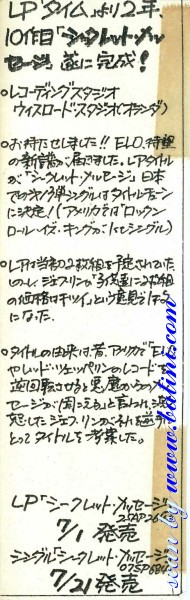 LP「タイム」より2年、
10作目「シークレット・メッ
セージ」遂に完成!
○レコーディングスタジオ
ウィスロードスタジオ(オランダ)
○お待たせしました!! ELO、待望
の新譜が届きました。LPタイトル
が“シークレット・メッセージ”日本
でのシングルはタイトルチューン
に決定!(アメリカでは「ロックン
ロール・イズ・キング」が1stシングル)
○LPは当初2枚組を予定されていた
しかし、ジェフ・リンが子供達に2枚組
の価格はキツイという意見で1枚
になった。
○タイトルの由来は、昔、アメリカで“EL
やレッド・ツェッペリンのレコードを
逆回転させると悪魔からのメッ
セージが聞こえる”と言われ、
したジェフ・リンがそれを逆手に
とってタイトルを考案した。
LP「シークレット・メッセージ」
25AP26
7/1 発売
シングル「シークレット・メッセージ」
07SP684
7/21 発売
scan by www.batint.com